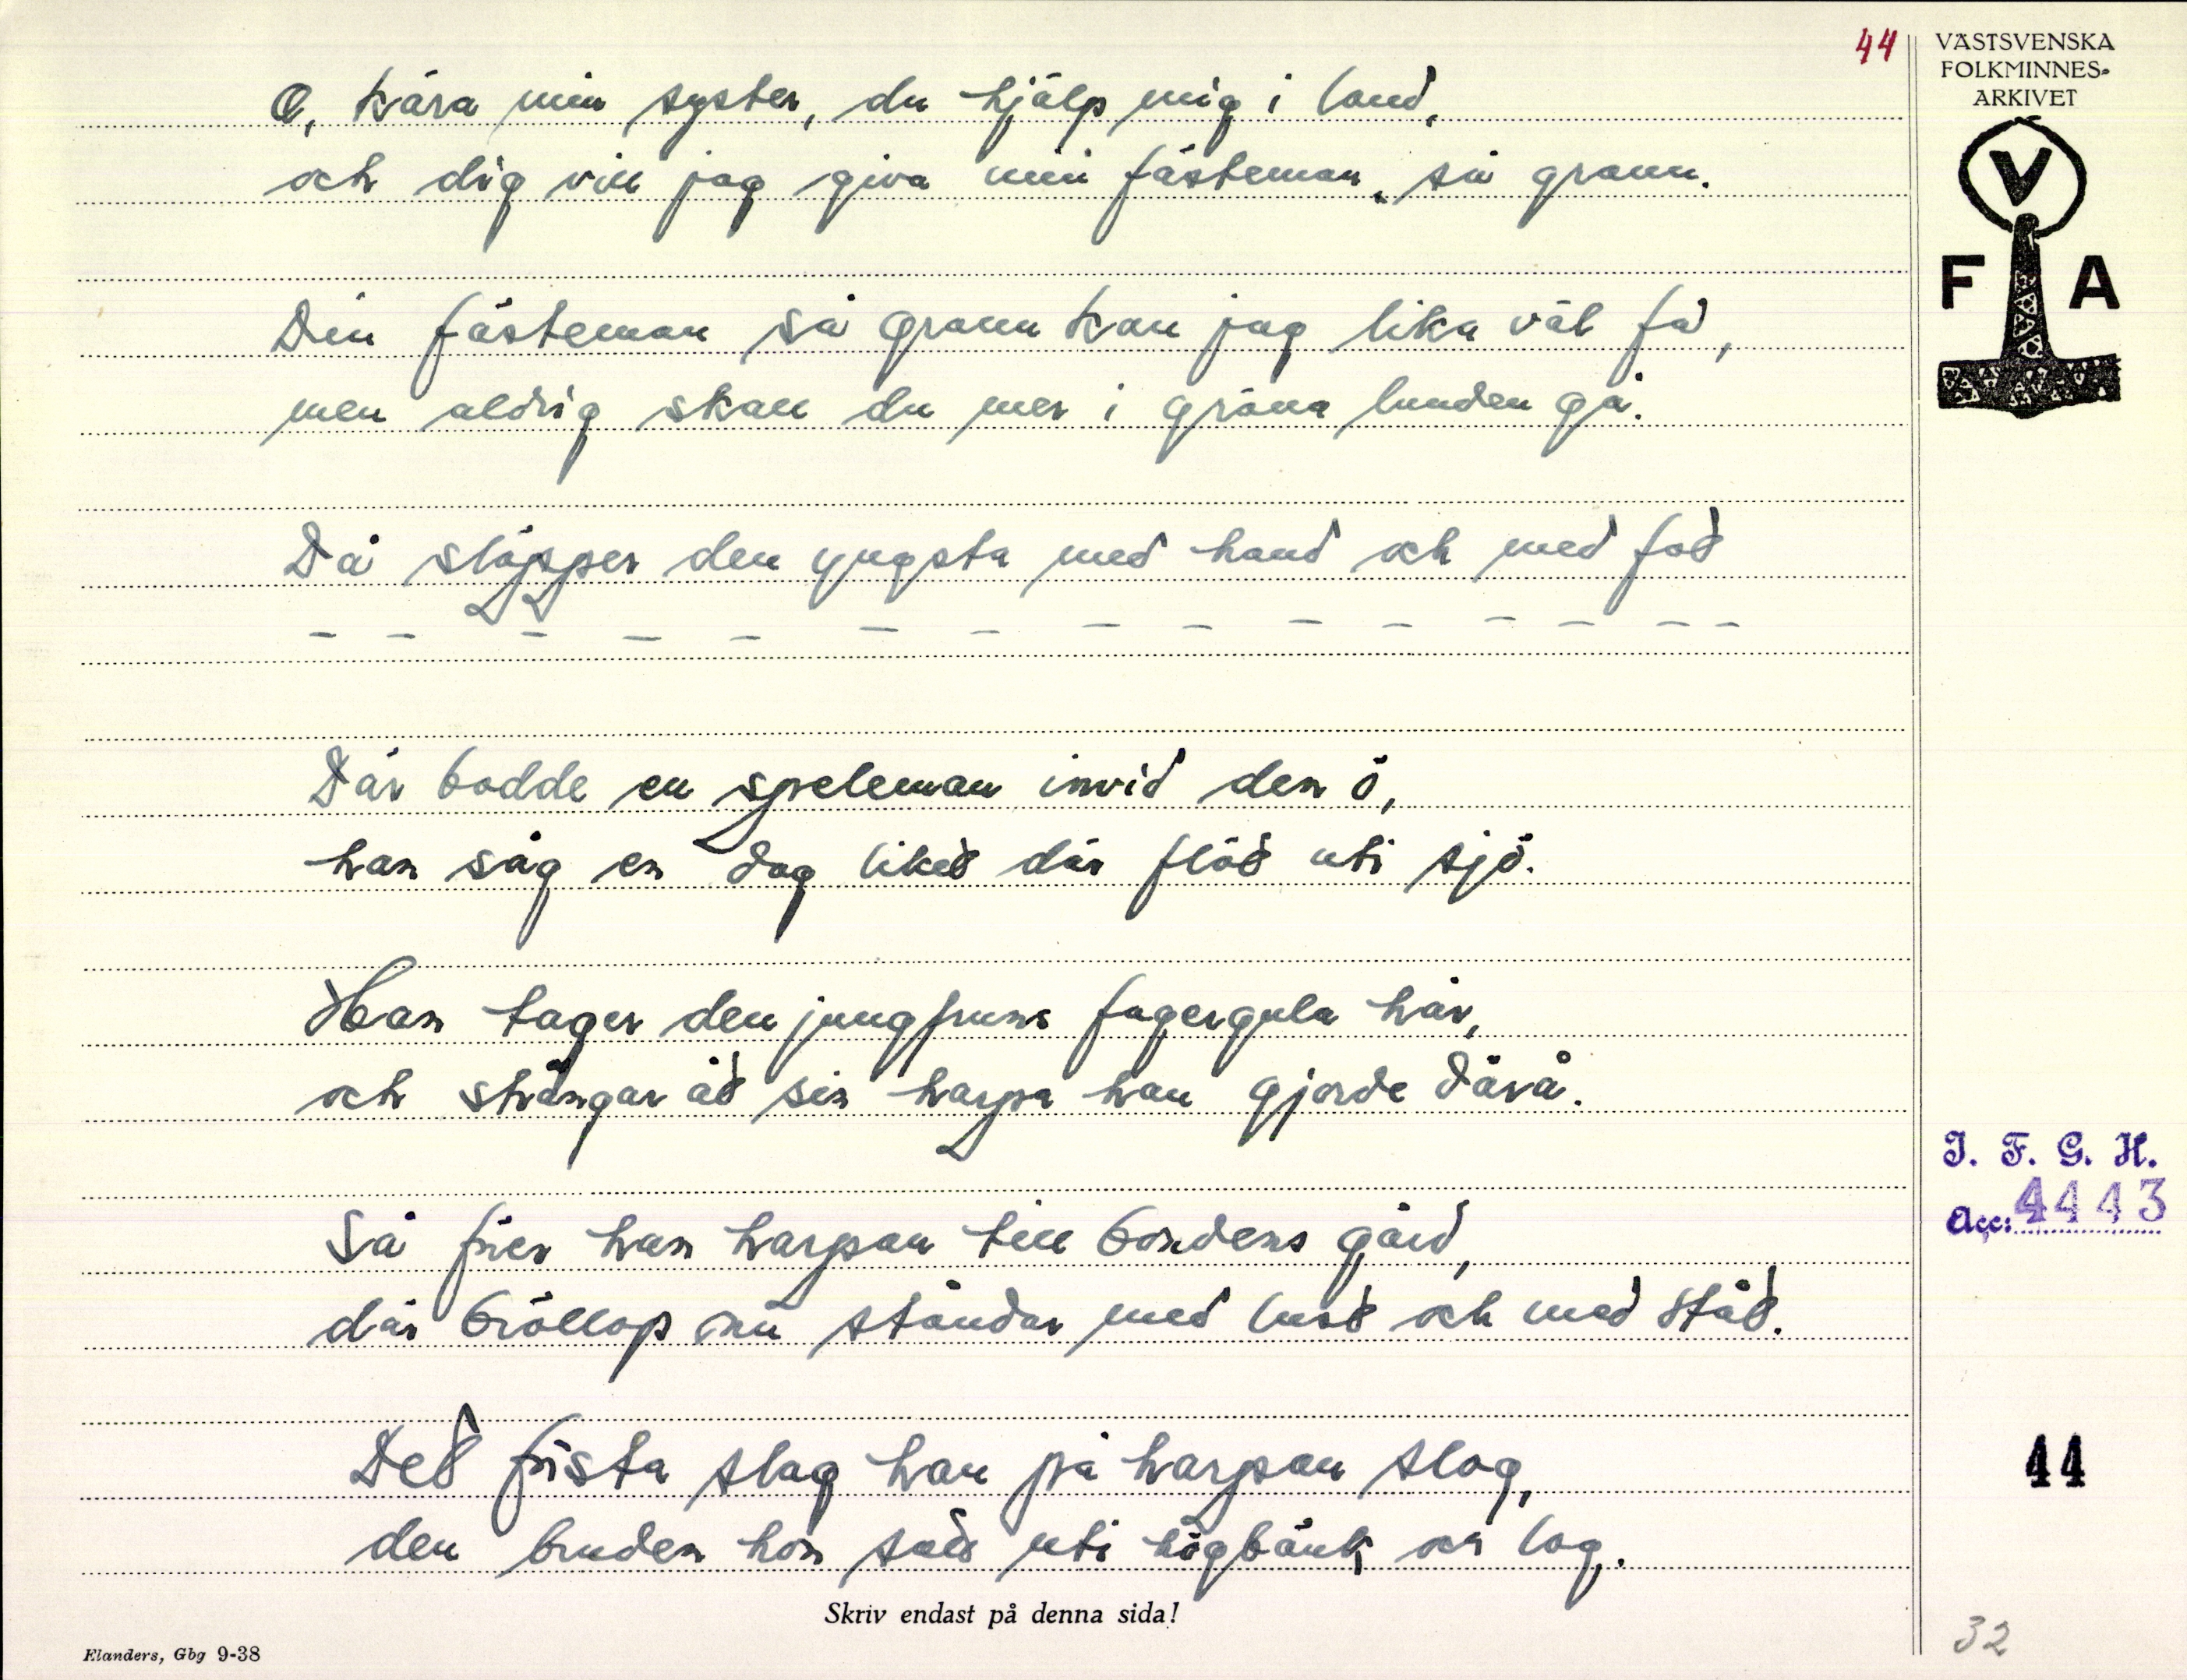 44
VÄSTSVENSKA
FOLKMINNES-
ARKIVET
V
F A
O, kära min syster, du hjälp mig i land,
och dig vill jag giva min fästeman så grann.
Din fästeman så grann kan jag lika väl få,
men aldrig skall du mer i gröna lunden gå.
Då släpper den yngsta med hand och med fot
– – – – – – – – – – – – – – –
Där bodde en speleman invid den ö,
han såg en dag liket där flöt uti sjö.
Han tager den jungfruns fagergula hår,
och strängar åt sin harpa han gjorde därå.
Så förer han harpan till bondens gård,
där bröllop nu ståndar med lust och med ståt.
Det första slag han på harpan slog,
den bruden hon satt uti högbänk och log.
I. F. G. H.
Acc: 4443
44
32
Skriv endast på denna sida!
Elanders, Gbg 9-38